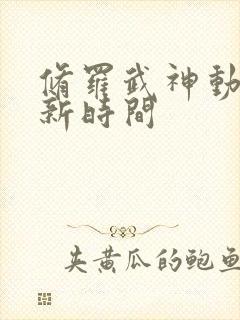 脩羅武神動
新時間
夹黄瓜的鲍鱼